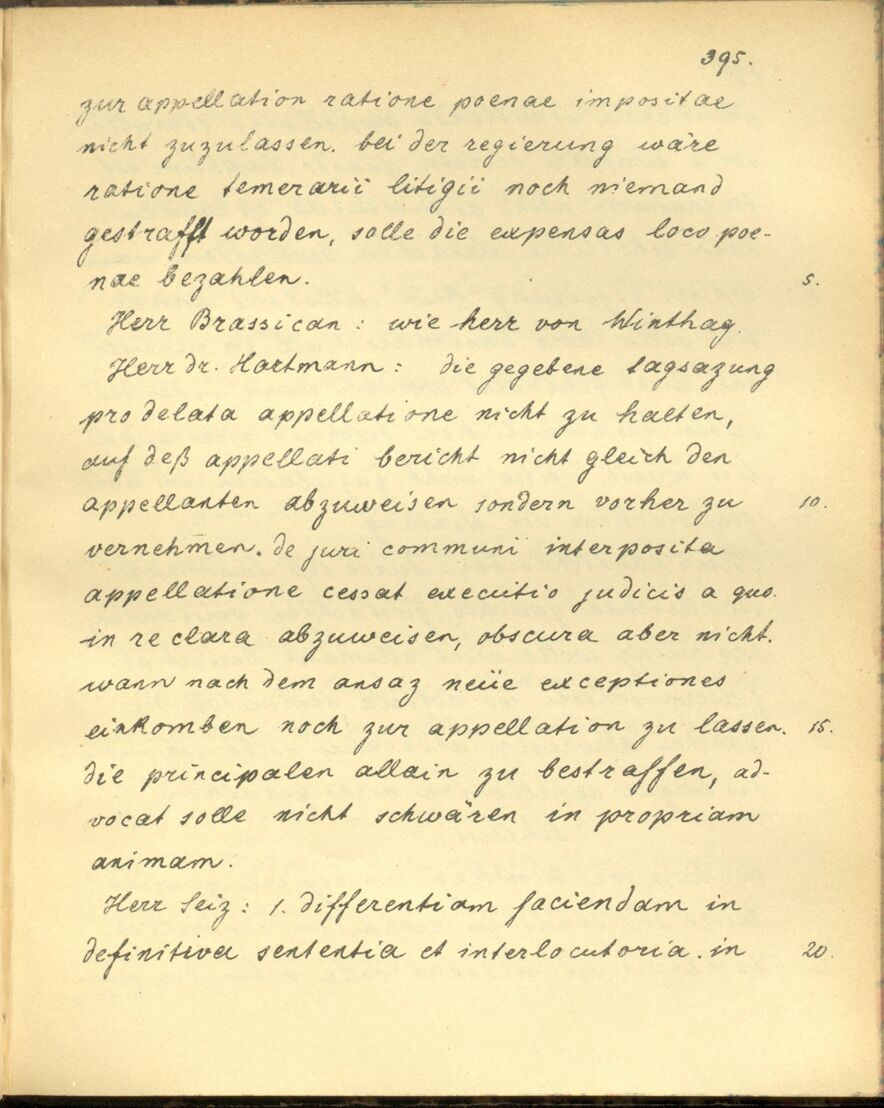 395.
zur appellation ratione poenae impositae
nicht zuzulassen. bei der regierung wäre
ratione temerarii litigii noch niemand
gestrafft worden, solle die expensas loco poe-
nae bezahlen. 5.
Herr Brassican: wie herr von Winthag.
Herr dr. Hartmann: die gegebene tagsazung
pro delata appellatione nicht zu halten,
auf deß appellati bericht nicht gleich den
appellanten abzuweisen sondern vorher zu 10.
vernehm̄en. de juri communi interposita
appellatione cessat executio judicis a quo.
in re clara abzuweisen, obscura aber nicht.
wann nach dem ansaz neüe exceptiones
einkomben noch zur appellation zu lassen. 15.
die principalen allain zu bestraffen, ad-
vocat solle nicht schwären in propriam
animam.
Herr Seiz: 1. differentiam faciendam in
definitiva sententia et interlocutoria. in 20.